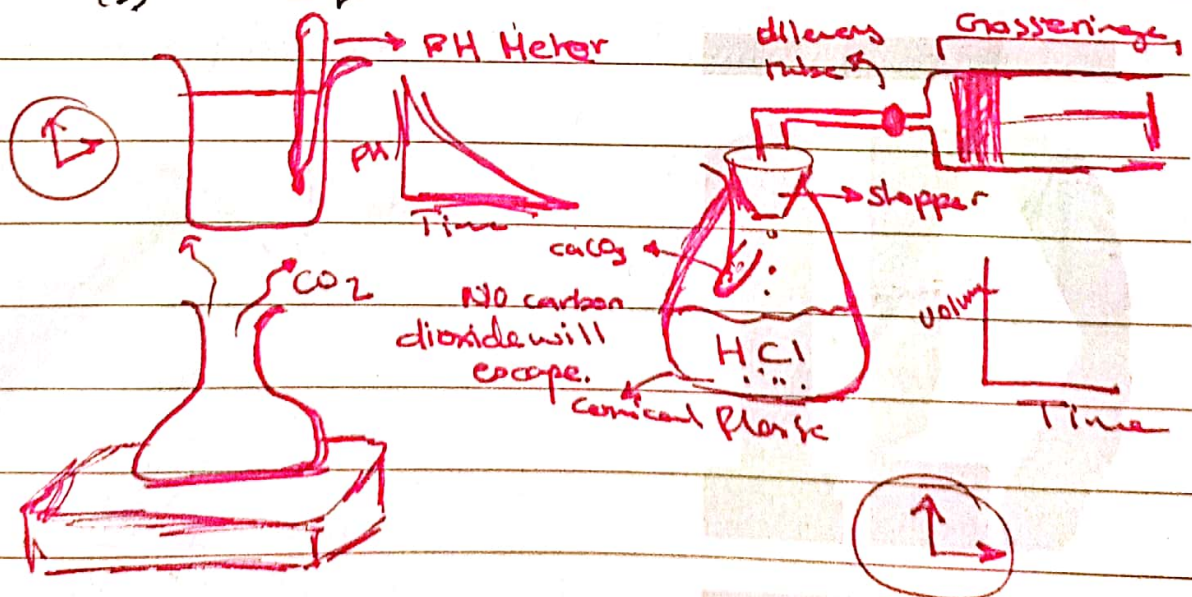 PH Meter
PH
Time
CO2
delivery
tube
Gasseringe
stopper
caCO3
NO carbon
dioxide will
escape.
HCl
conical flask
volume
Time